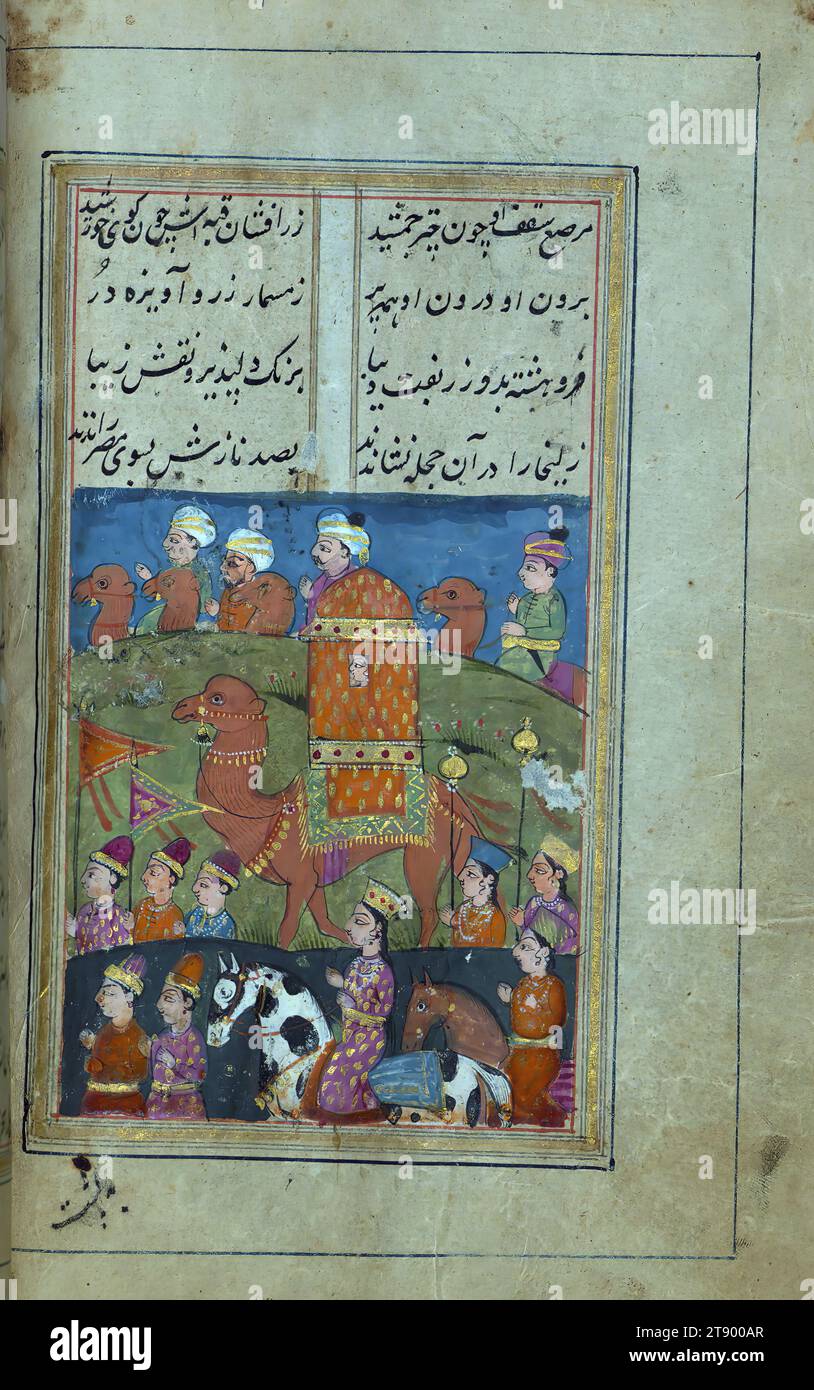 مرصع سقف او چون چتر جمشید زرافشان قبه اش چون گوی خورشید
برون او درون او همه پر ز مسمار زر و آویزه دُر
فروهشته بدو زربفت دیبا برنک دلپذیر و نقش زیبا
زلیخا را در آن حجله نشاندند بصد نازش بسوی مصر راندند
alamy
alamy
alamy
Image ID: 2T900AR
www.alamy.com